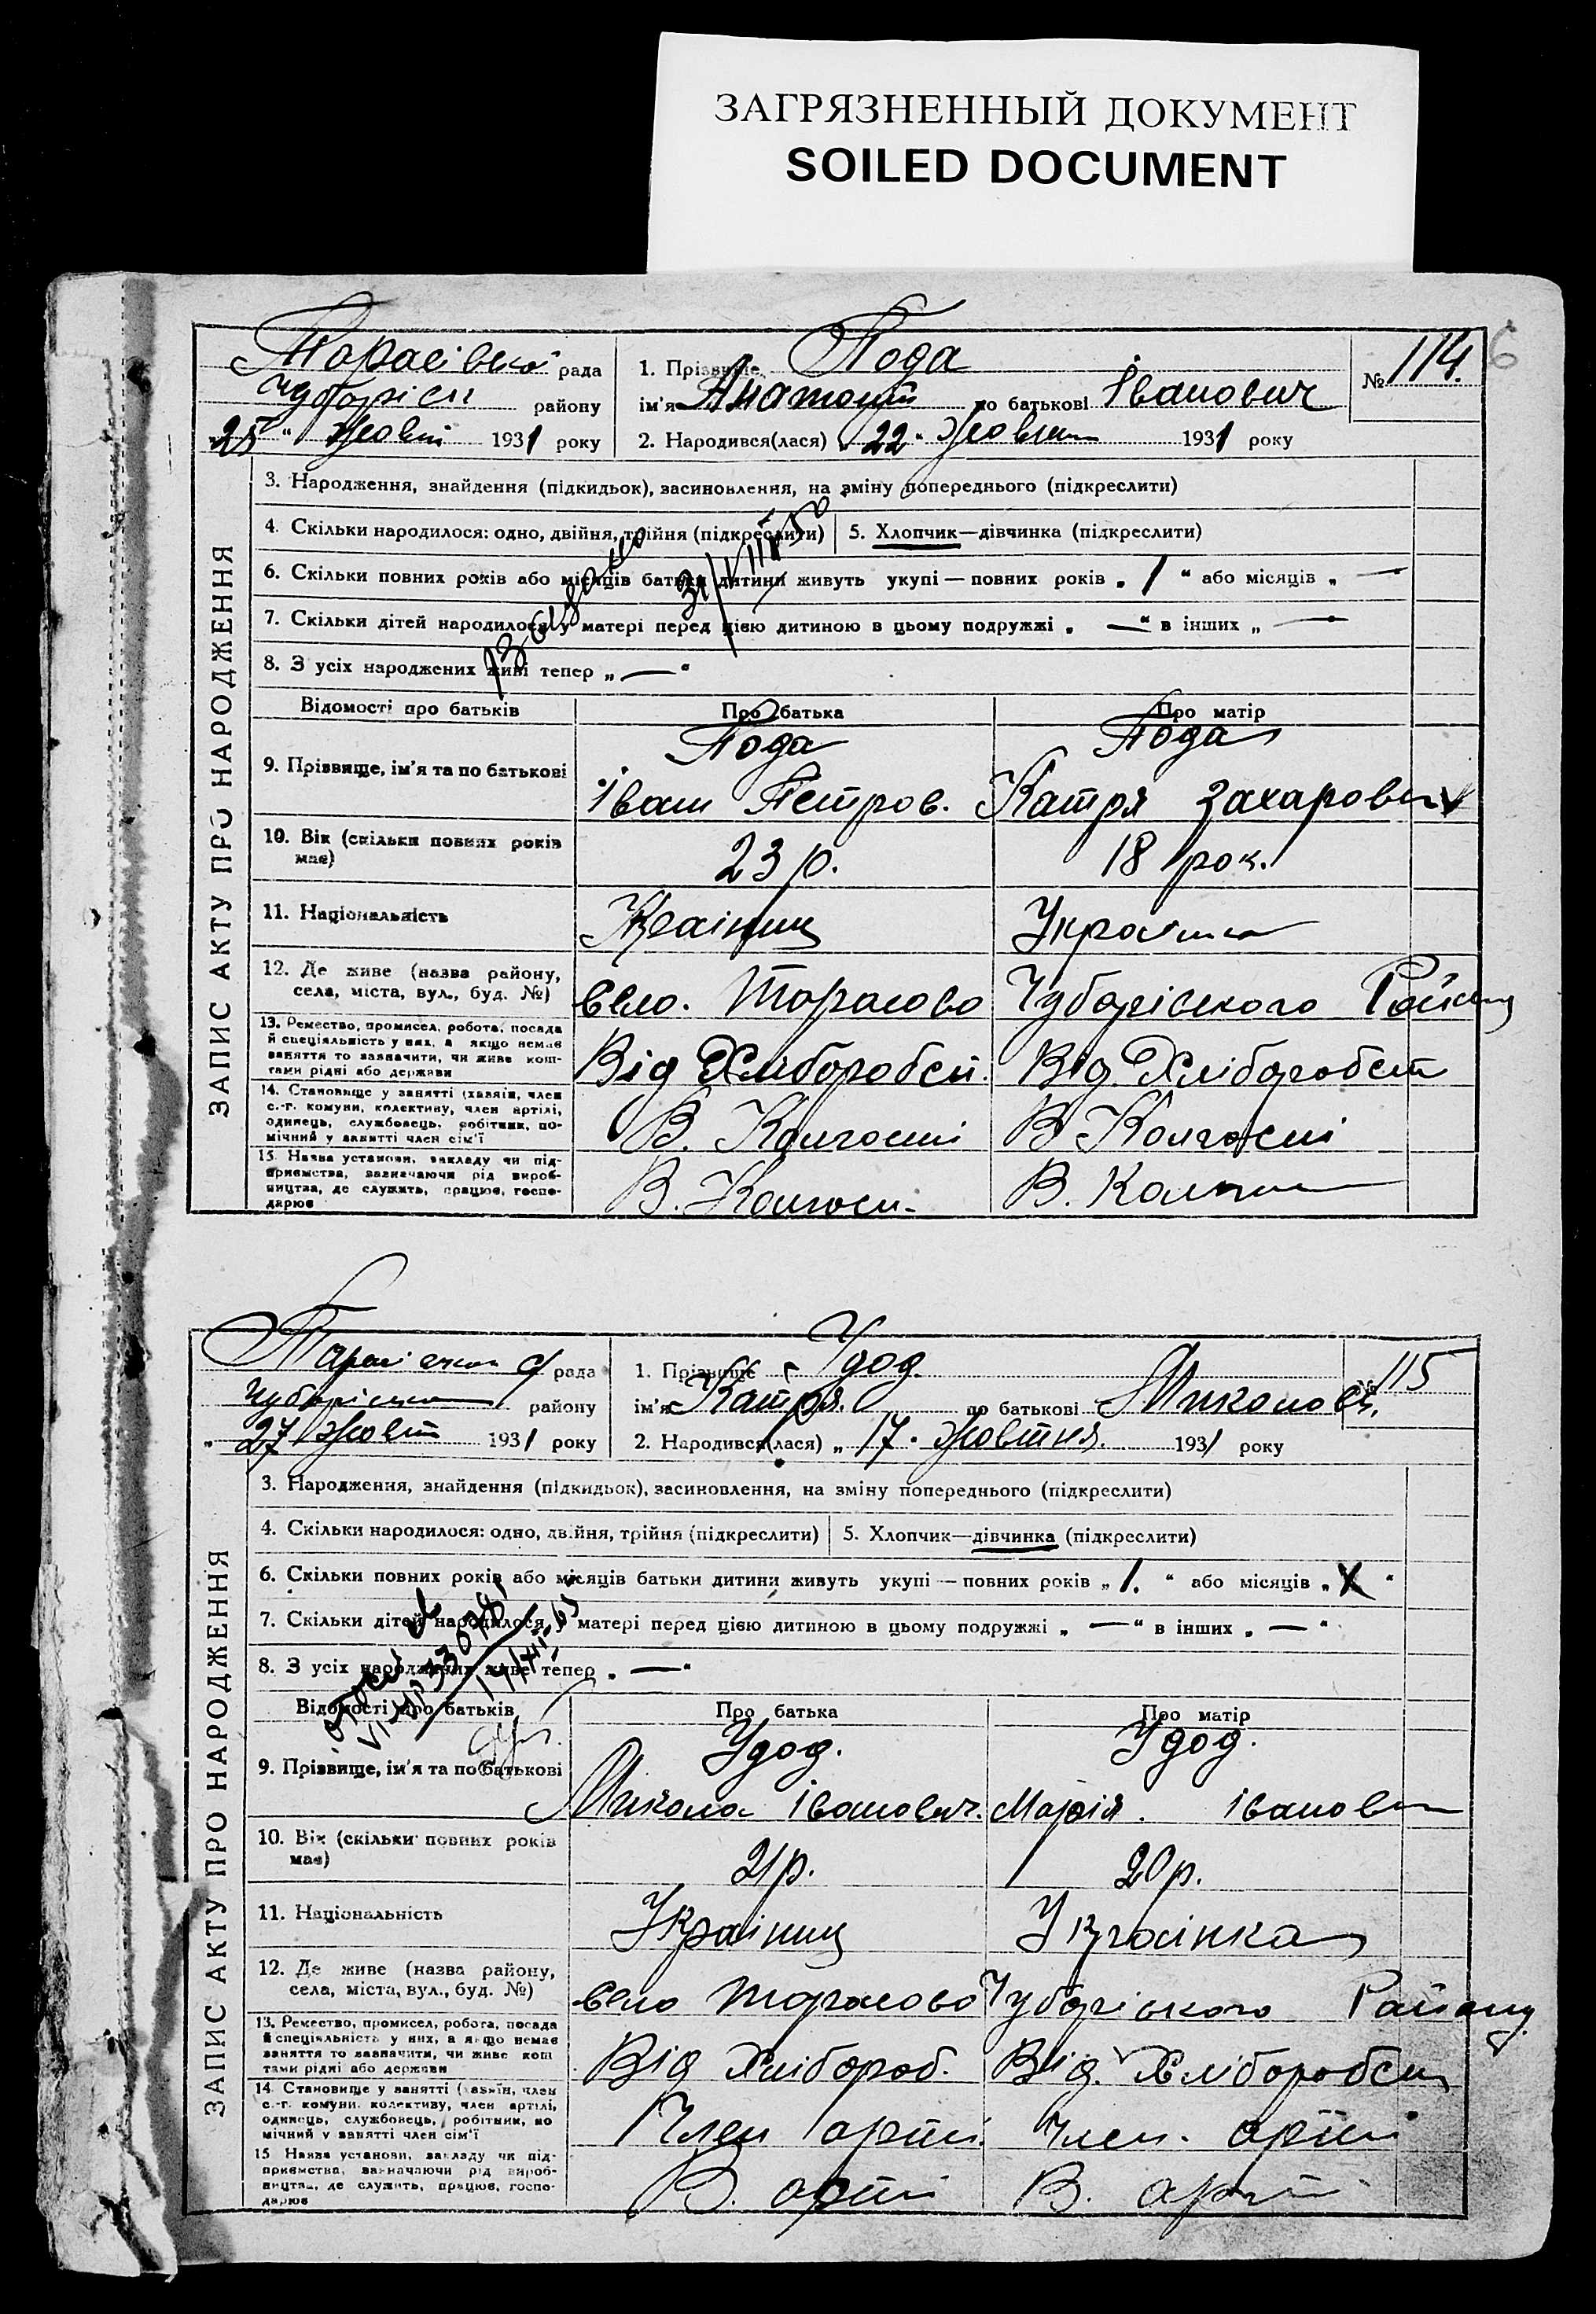 ЗАГРЯЗНЕННЫЙ ДОКУМЕНТ
SOILED DOCUMENT
6
ЗАПИС АКТУ ПРО НАРОДЖЕННЯ
Тарасівська рада
району
25 " Жовт 1931 року
1. Прізвище Пода
ім'я Анатолій по батькові Іванович
№ 114.
2. Народився(лася) „ 22 " Жовтн 1931 року
3. Народження, знайдення (підкидьок), засиновлення, на зміну попереднього (підкреслити)
4. Скільки народилося: одно, двійня, трійня (підкреслити) 5. Хлопчик—дівчинка (підкреслити)
6. Скільки повних років або місяців батьки дитини живуть укупі — повних років „ 1 " або місяців „ —
7. Скільки дітей народилося у матері перед цією дитиною в цьому подружжі „ — " в інших „ —
8. З усіх народжених живі тепер „ — "
31/VIII 50
Відомості про батьків Про батька Про матір
9. Прізвище, ім'я та по батькові
Пода Пода
Іван Петров. Катря Захарови
10. Вік (скільки повних років має)
23 р. 18 рок.
11. Національність
Україниц Українка
12. Де живе (назва району, села, міста, вул., буд. №)
село. Тарасово Чубарівського Району
13. Ремество, промисел, робота, посада й спеціальність у них, а якщо немає заняття то зазначити, чи живе коштами рідні або держави
Від Хліборобст. Від. Хліборобст
14. Становище у занятті (хазяїн, член с.-г. комуни, колективу, член артілі, одинець, службовець, робітник, помічний у занятті член сім'ї
В. Колгоспі В Колгоспі
15. Назва установи, закладу чи підприємства, зазначаючи рід виробництва, де служить, працює, господарює
В. Колгосп. В. Колгосп
ЗАПИС АКТУ ПРО НАРОДЖЕННЯ
рада
району
„ 27 Жовт 1931 року
1. Прізвище Удод.
ім'я Катря. по батькові Миколов.
115
2. Народився(лася) „ 17 . Жовтня. 1931 року
3. Народження, знайдення (підкидьок), засиновлення, на зміну попереднього (підкреслити)
4. Скільки народилося: одно, двійня, трійня (підкреслити) 5. Хлопчик—дівчинка (підкреслити)
6. Скільки повних років або місяців батьки дитини живуть укупі — повних років „ 1. " або місяців „ X "
7. Скільки дітей народилося у матері перед цією дитиною в цьому подружжі „ — " в інших „ — "
8. З усіх народжених живе тепер „ — "
Відомості про батьків Про батька Про матір
9. Прізвище, ім'я та по батькові
Удод. Удод.
Микола Іванович. Марія. Іванови
10. Вік (скільки повних років має)
21р. 20р.
11. Національність
Україниц Українка
12. Де живе (назва району, села, міста, вул., буд. №)
село Тарасово Чубарівського Району
13. Ремество, промисел, робота, посада й спеціяльність у них, а якщо немає заняття то зазначити, чи живе коштами рідні або держави
Від Хлібороб. Від. Хліборобст
14. Становище у занятті (хазяїн, член с.-г. комуни, колективу, член артілі, одинець, службовець, робітник, помічний у занятті член сім'ї
Член артіл. Член. артіл
15 Назва установи, закладу чи підприємства, зазначаючи рід виробництва, де служить, працює, господарює
В. артіл В. артіл